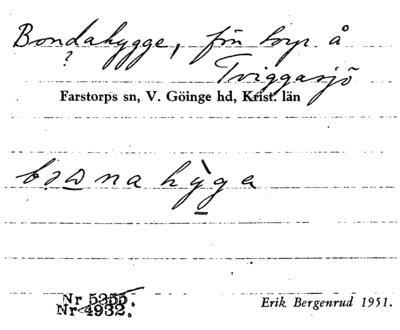 Bondahygge, fin torp å
?
Tviggasjö
Farstorps sn, V. Göinge hd, Krist. län
hỳga
Nr 5355.
Nr 4932.
Erik Bergenrud 1951.